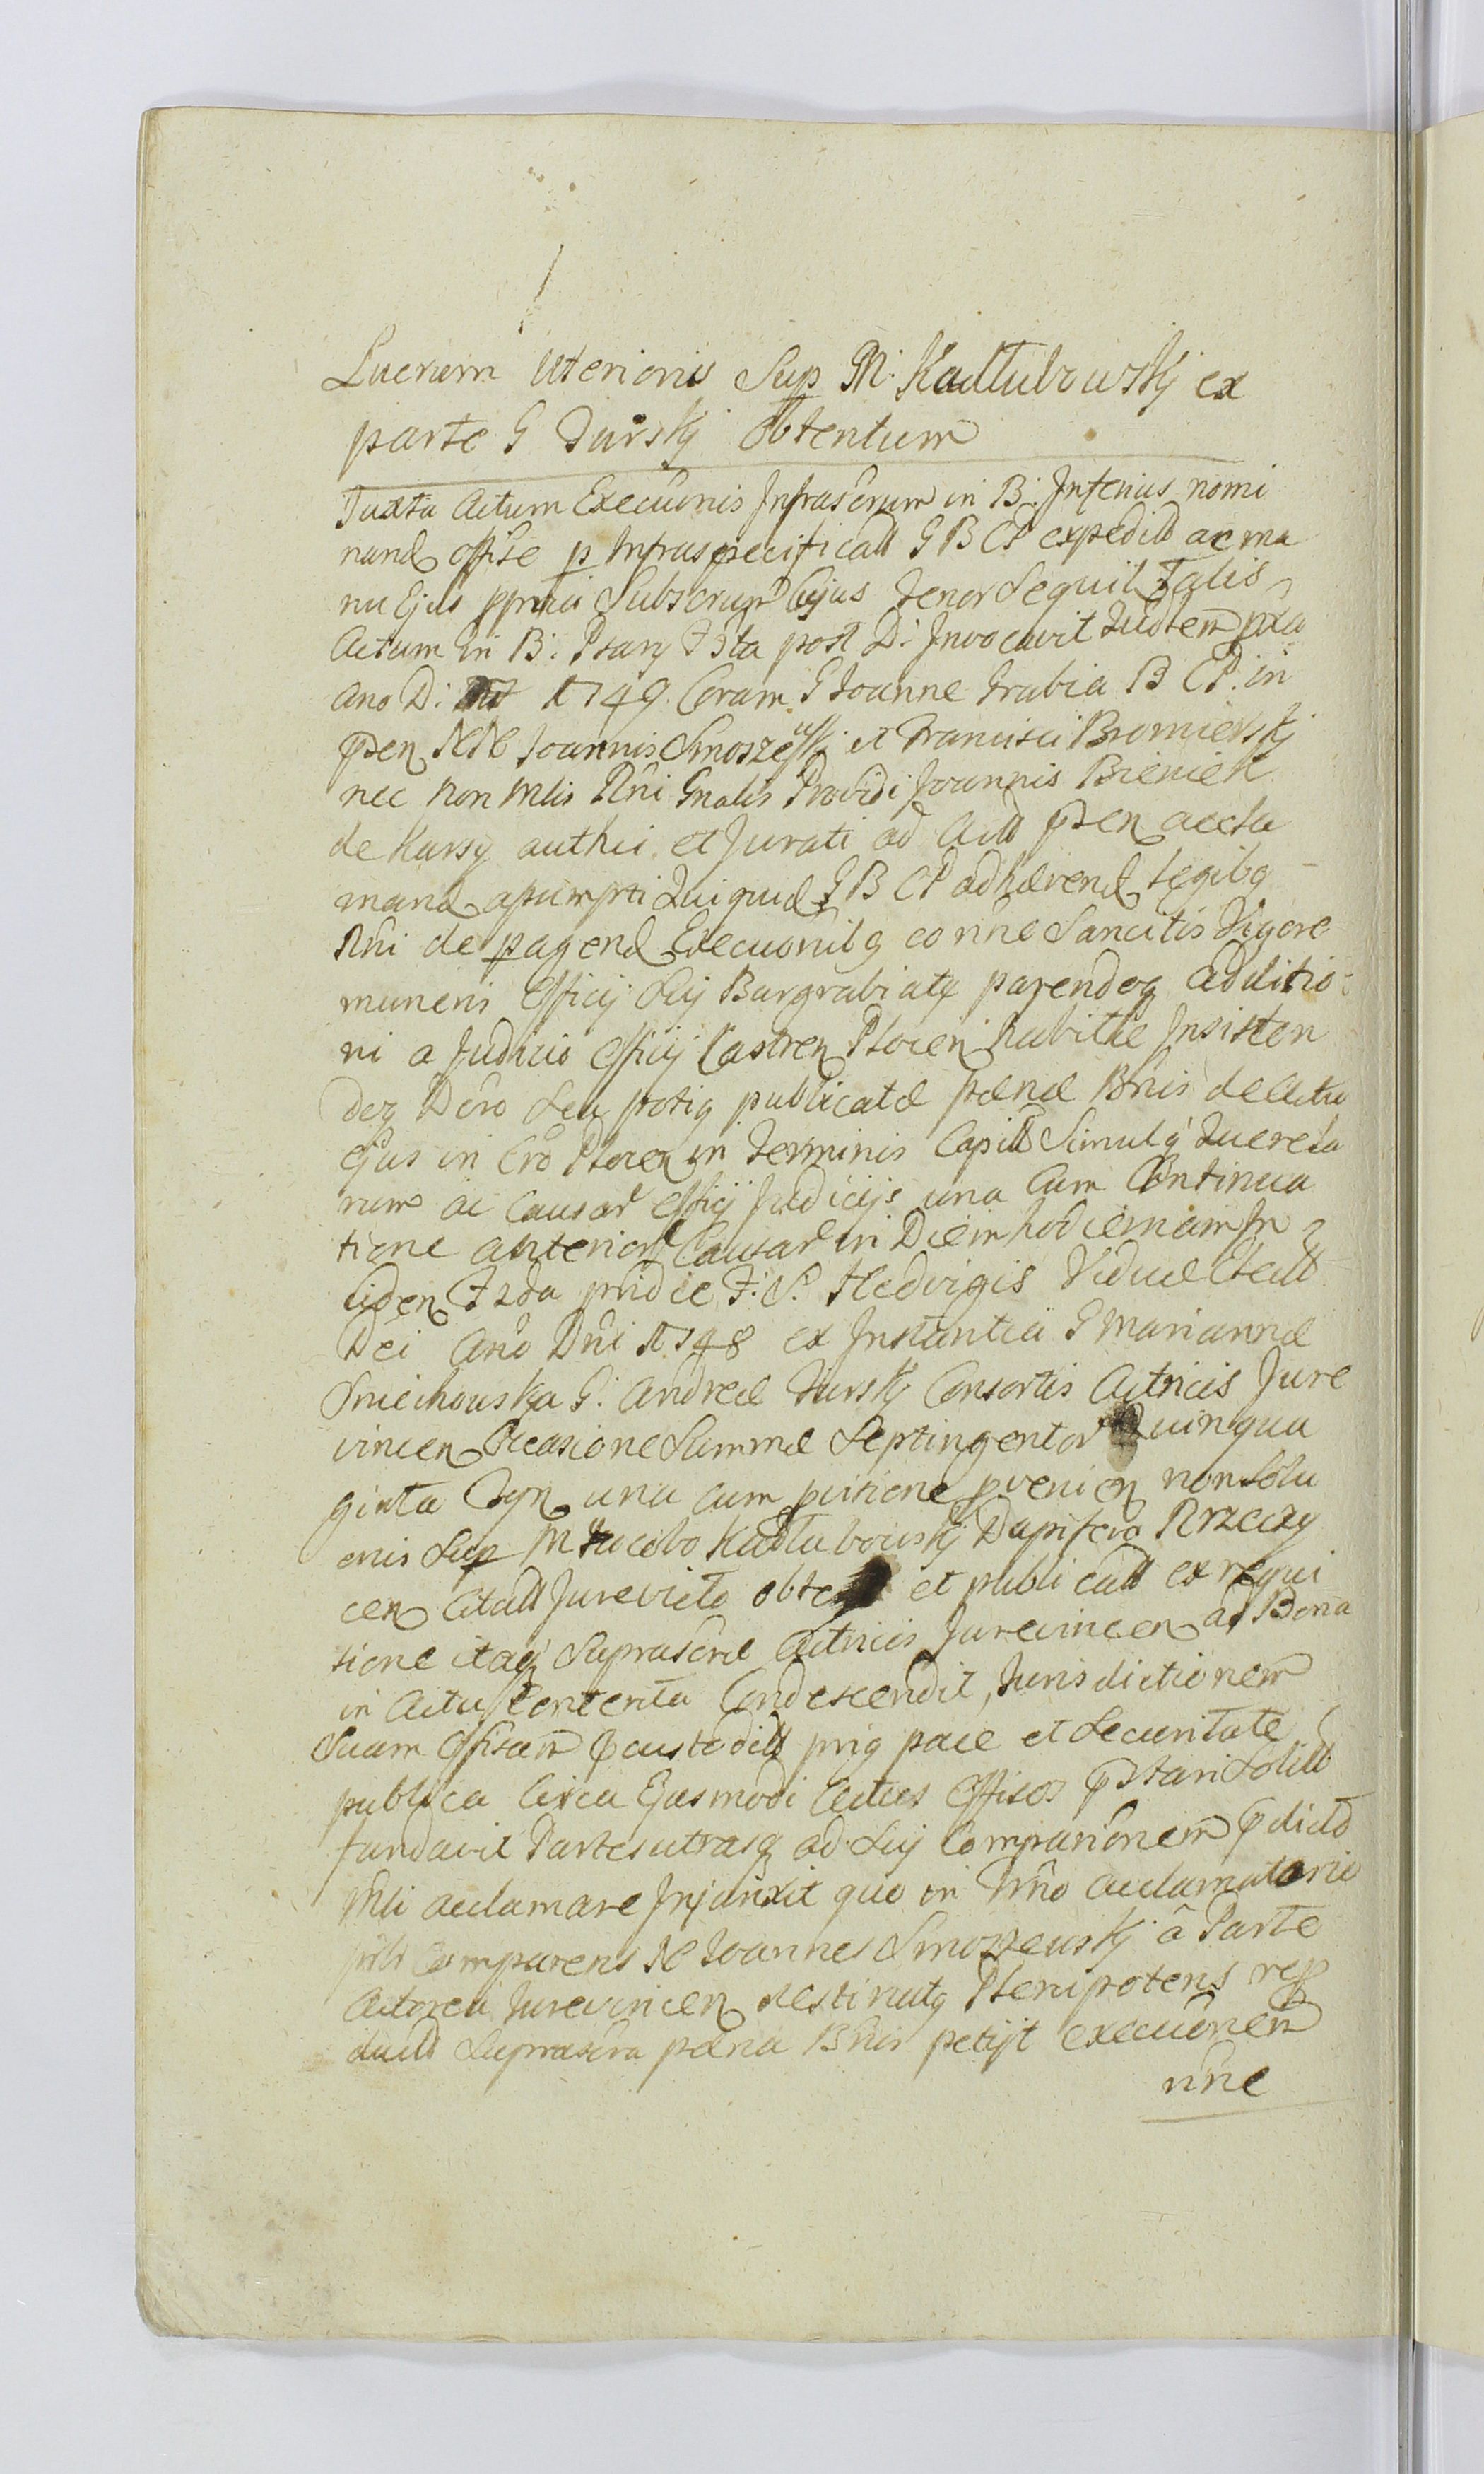 Lucrum Uterioris Sup M: Kadłubowskj ex
parte G Turskj Obtentum
Juxta Actum Execuōnis Infrascrum in B: Inferius nomi
nand offise p Infraspecificatt G B CP expeditt ac ma
nu Ejus ppria Subscrum Cujus tenor Sequit Talis
Actum in B: Psary F 3ta post D: Invocavit
Ano D: 1749. Coram G Joanne Grabia B CP. in
pñen NN Joannis Smoszewskj et Francisci Bromierskj
nec non Mlis Rñi Gnalis Providi Joannis Bieniek
de Karsy authci et Jurati ad Actt pñen accla
mand assumpti Quiquid G B CP adhærend Legibq
Rñi de pagend Execuonibq eo nñe Sancitis Vigore
muneris Officij Sui Burgrabiatq parendoq additio
ni a Judicio Officij Castren Plocen habitæ Insisten
doq Dcro Seu potiq publicatæ pænæ Bnis de Actu
Ejus in Cro Plocen in Terminis Capitt Simulq Querela
rum ac Causar Officij Judicijs una Cum Continua
tione anterior Causar in Diem hodiernam In
ciden F 2da pridie F: S: Hedvigis Viduæ Electt
Dei Ano Dñi 1748 ex Instantia G Mariannæ
Sniechowska G: Andreæ Turskj Consortis Actricis Jure
vincen Occasione Summæ Septingentor Quinqua
ginta Tyn una cum pvisione pvenien non Solu
onis Sup M Jacobo Kadłubowskj Dapifero Rzeczy
cen Citatt Jurevicto obten et publicatt ex requi
tione itaq Suprascræ Actricis Jurevincen ad Bona
in Actu Contenta Condescendit, Jurisdictionem
Suam Offisam pcustoditt priq pace et Securitate
publica Circa Ejusmodi Actus Offisos pstari Solitt
fundavit Partes utrasq ad Sui Comparōnem pdictt
Mli acclamare Injunxit quo in Trño acclamatorio
prlr Comparens N Joannes Smoszewskj à Parte
Actorea Jurevincen destinatq Plenipotens
Suprascra pæna Bnis petijt execuōnem
nñe